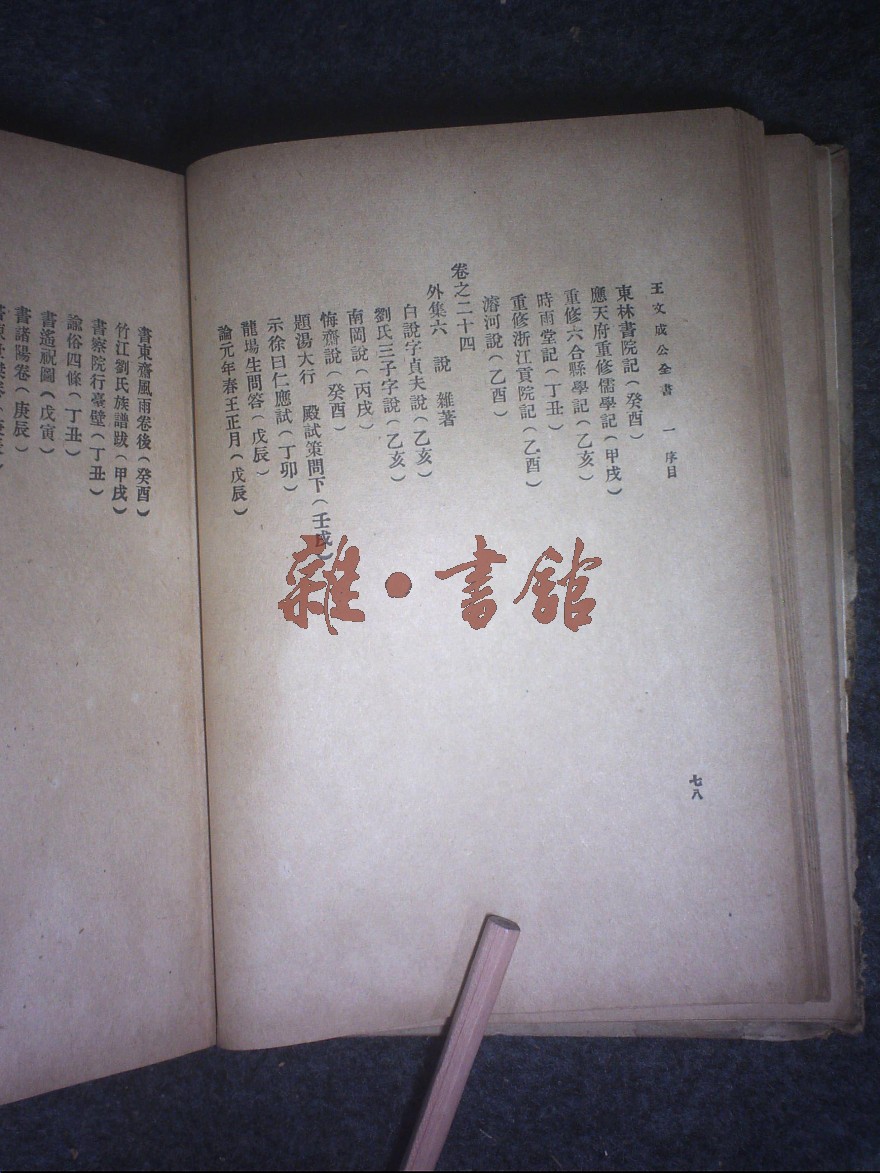 王文成公全書 一 序目
東林書院記(癸酉)
應天府重修儒學記(甲戌)
重修六合縣學記(乙亥)
時雨堂記(丁丑)
重修浙江貢院記(乙酉)
濬河說(乙酉)
卷之二十四
外集六 說 雜著
白說字貞夫說(乙亥)
劉氏三子字說(乙亥)
南岡說(丙戌)
悔齋說(癸酉)
題湯大行 殿試策問下(壬戌)
示徐曰仁應試(丁卯)
龍場生問答(戊辰)
論元年春王正月(戊辰)
七八
書東齋風雨卷後(癸酉)
竹江劉氏族譜跋(甲戌)
書察院行臺壁(丁丑)
諭俗四條(丁丑)
書遙祝圖(戊寅)
書諸陽卷(庚辰)
雜·書館